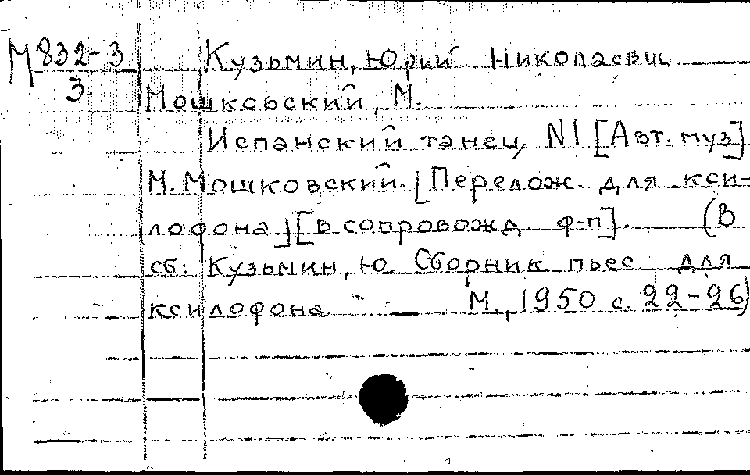 М 832-3 Кузьмин, Юрий Николаевич
3 Мошковский, М.
Испанский танец N1 [Авт. муз]
М. Мошковский. [Перелож. для кси-
лофона] [в сопровожд. ф-п]. (В
сб: Кузьмин, Ю. Сборник пьес для
ксилофона М., 1950 с. 22-26)